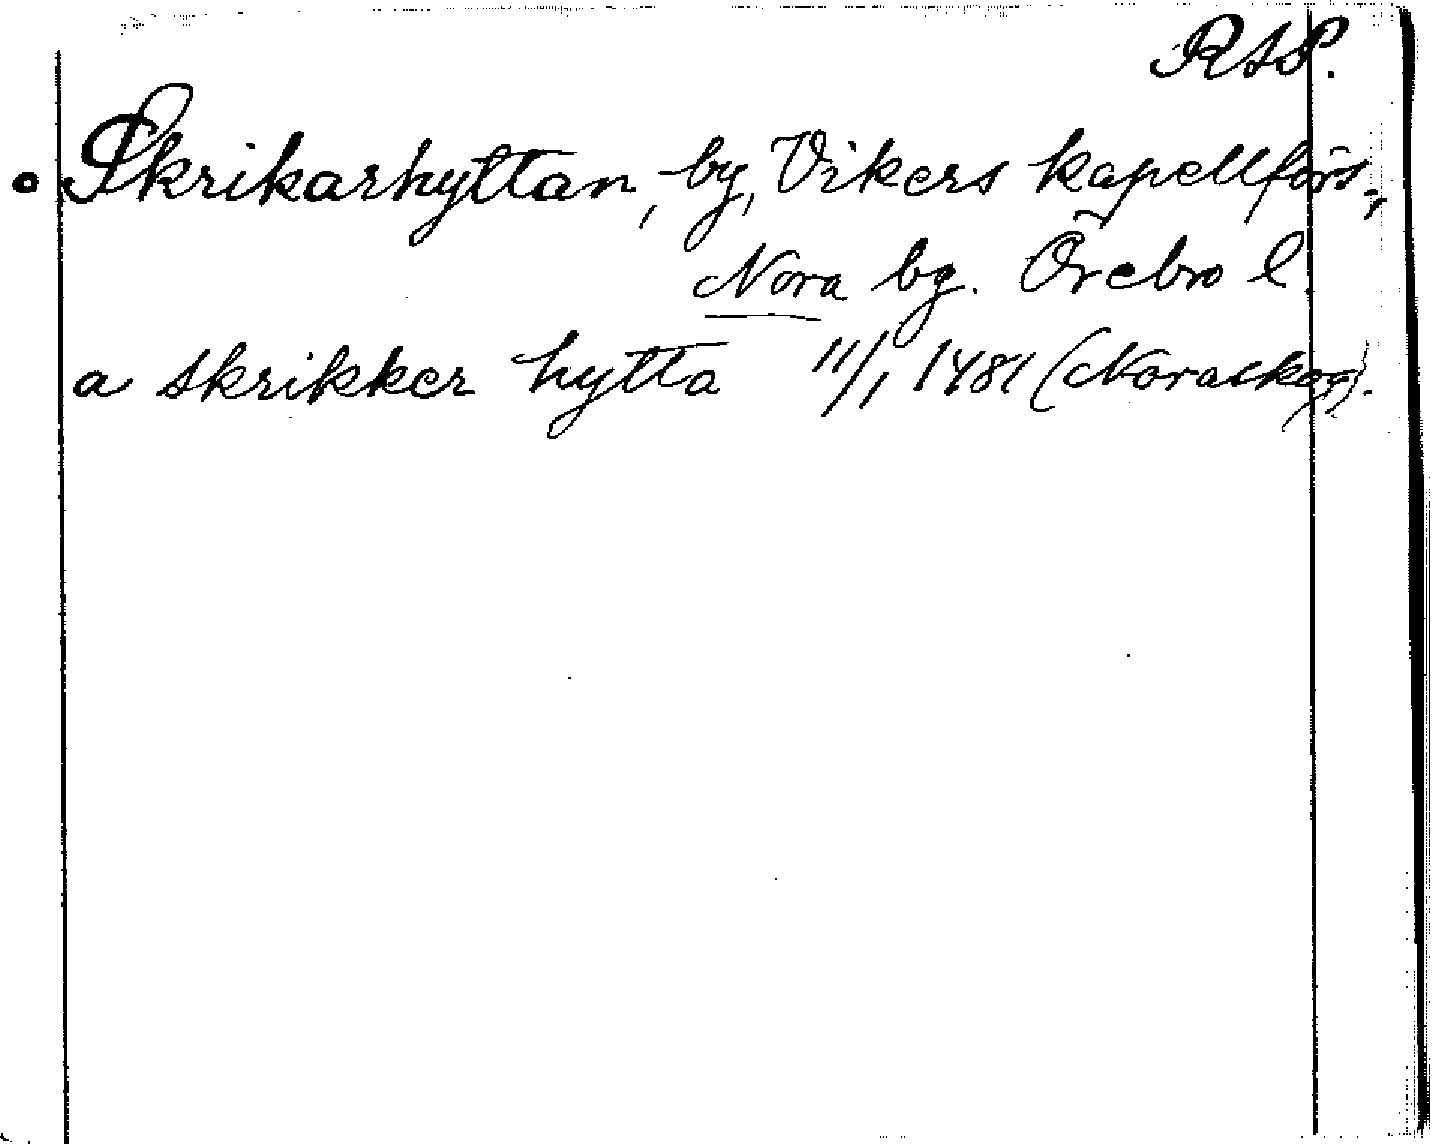 RAP.
Skrikarhyttan, by, Vikers kapellförs.,
Nora bg. Örebro l.
a skrikker hytta 11/1 1481 (Noraskog).